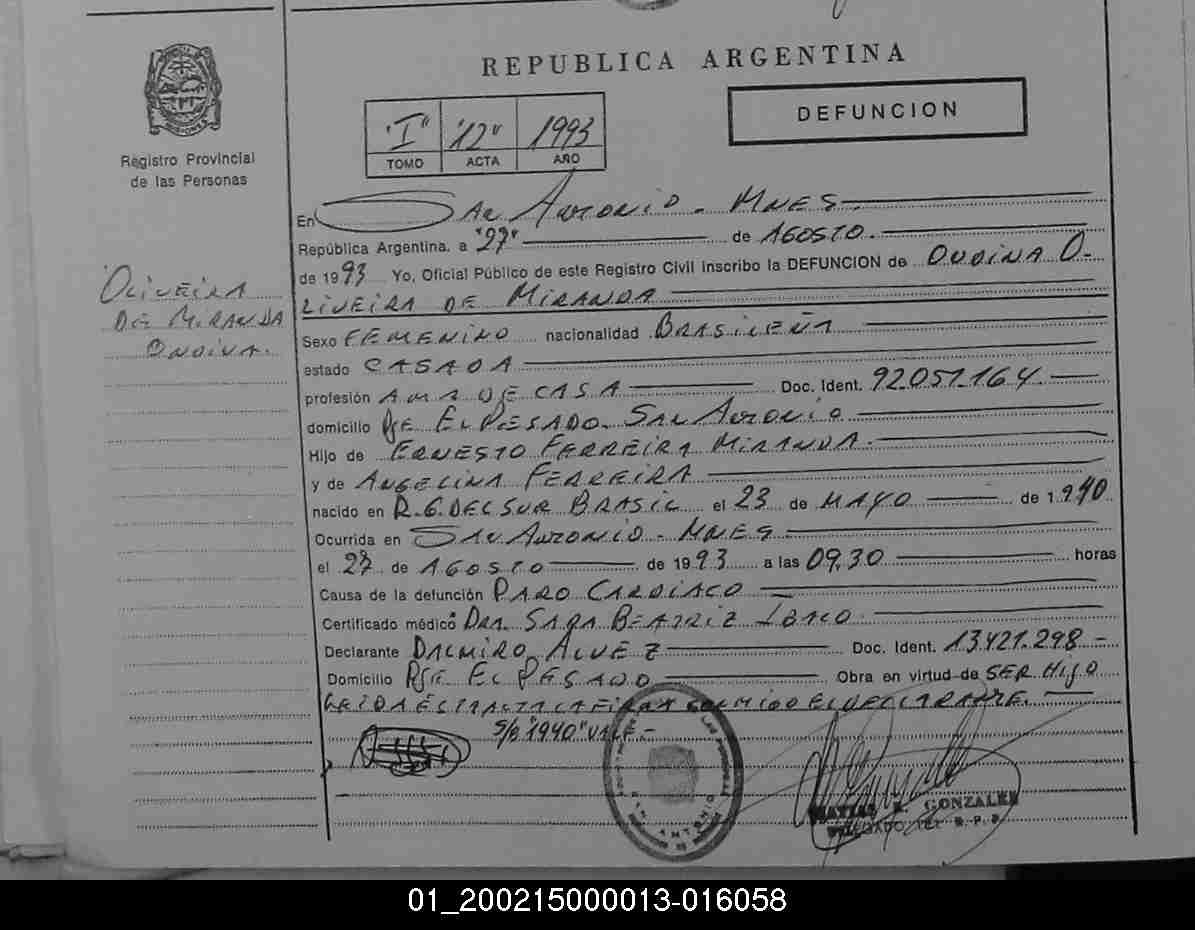 REPUBLICA ARGENTINA
DEFUNCION
"I" "12" 1993
TOMO ACTA AÑO
MISIONES
Registro Provincial
de las Personas
OLIVEIRA
DE MIRANDA
ONDINA.
En SAN ANTONIO - MNES.
República Argentina. a "27" de AGOSTO.
de 1993 Yo, Oficial Público de este Registro Civil inscribo la DEFUNCION de ONDINA O-
LIVEIRA DE MIRANDA
Sexo FEMENINO nacionalidad BRASILEÑA
estado CASADA
profesión AMA DE CASA Doc. Ident. 92.051.164.
domicilio Pje EL PESADO. SAN ANTONIO
Hijo de ERNESTO FERREIRA MIRANDA.
y de ANGELINA FERREIRA
nacido en R.G. DEL SUR BRASIL el 23 de MAYO de 1.940
Ocurrida en SAN ANTONIO - MNES
el 27 de AGOSTO de 1993 a las 09,30 horas
Causa de la defunción PARO CARDIACO
Certificado médico DRA. SARA BEATRIZ
Declarante DALMIRO ALVEZ Doc. Ident. 13.421.298 -
Domicilio Pje. EL PESADO Obra en virtud de SER HIJO
LEIDA ESTA ACTA LA FIRMA CONMIGO EL DECLARANTE.
S/B "1940" VALE.-
SAN ANTONIO
MATIAS R. GONZALEZ
DELEGADO DEL R.P.P.
01_200215000013-016058